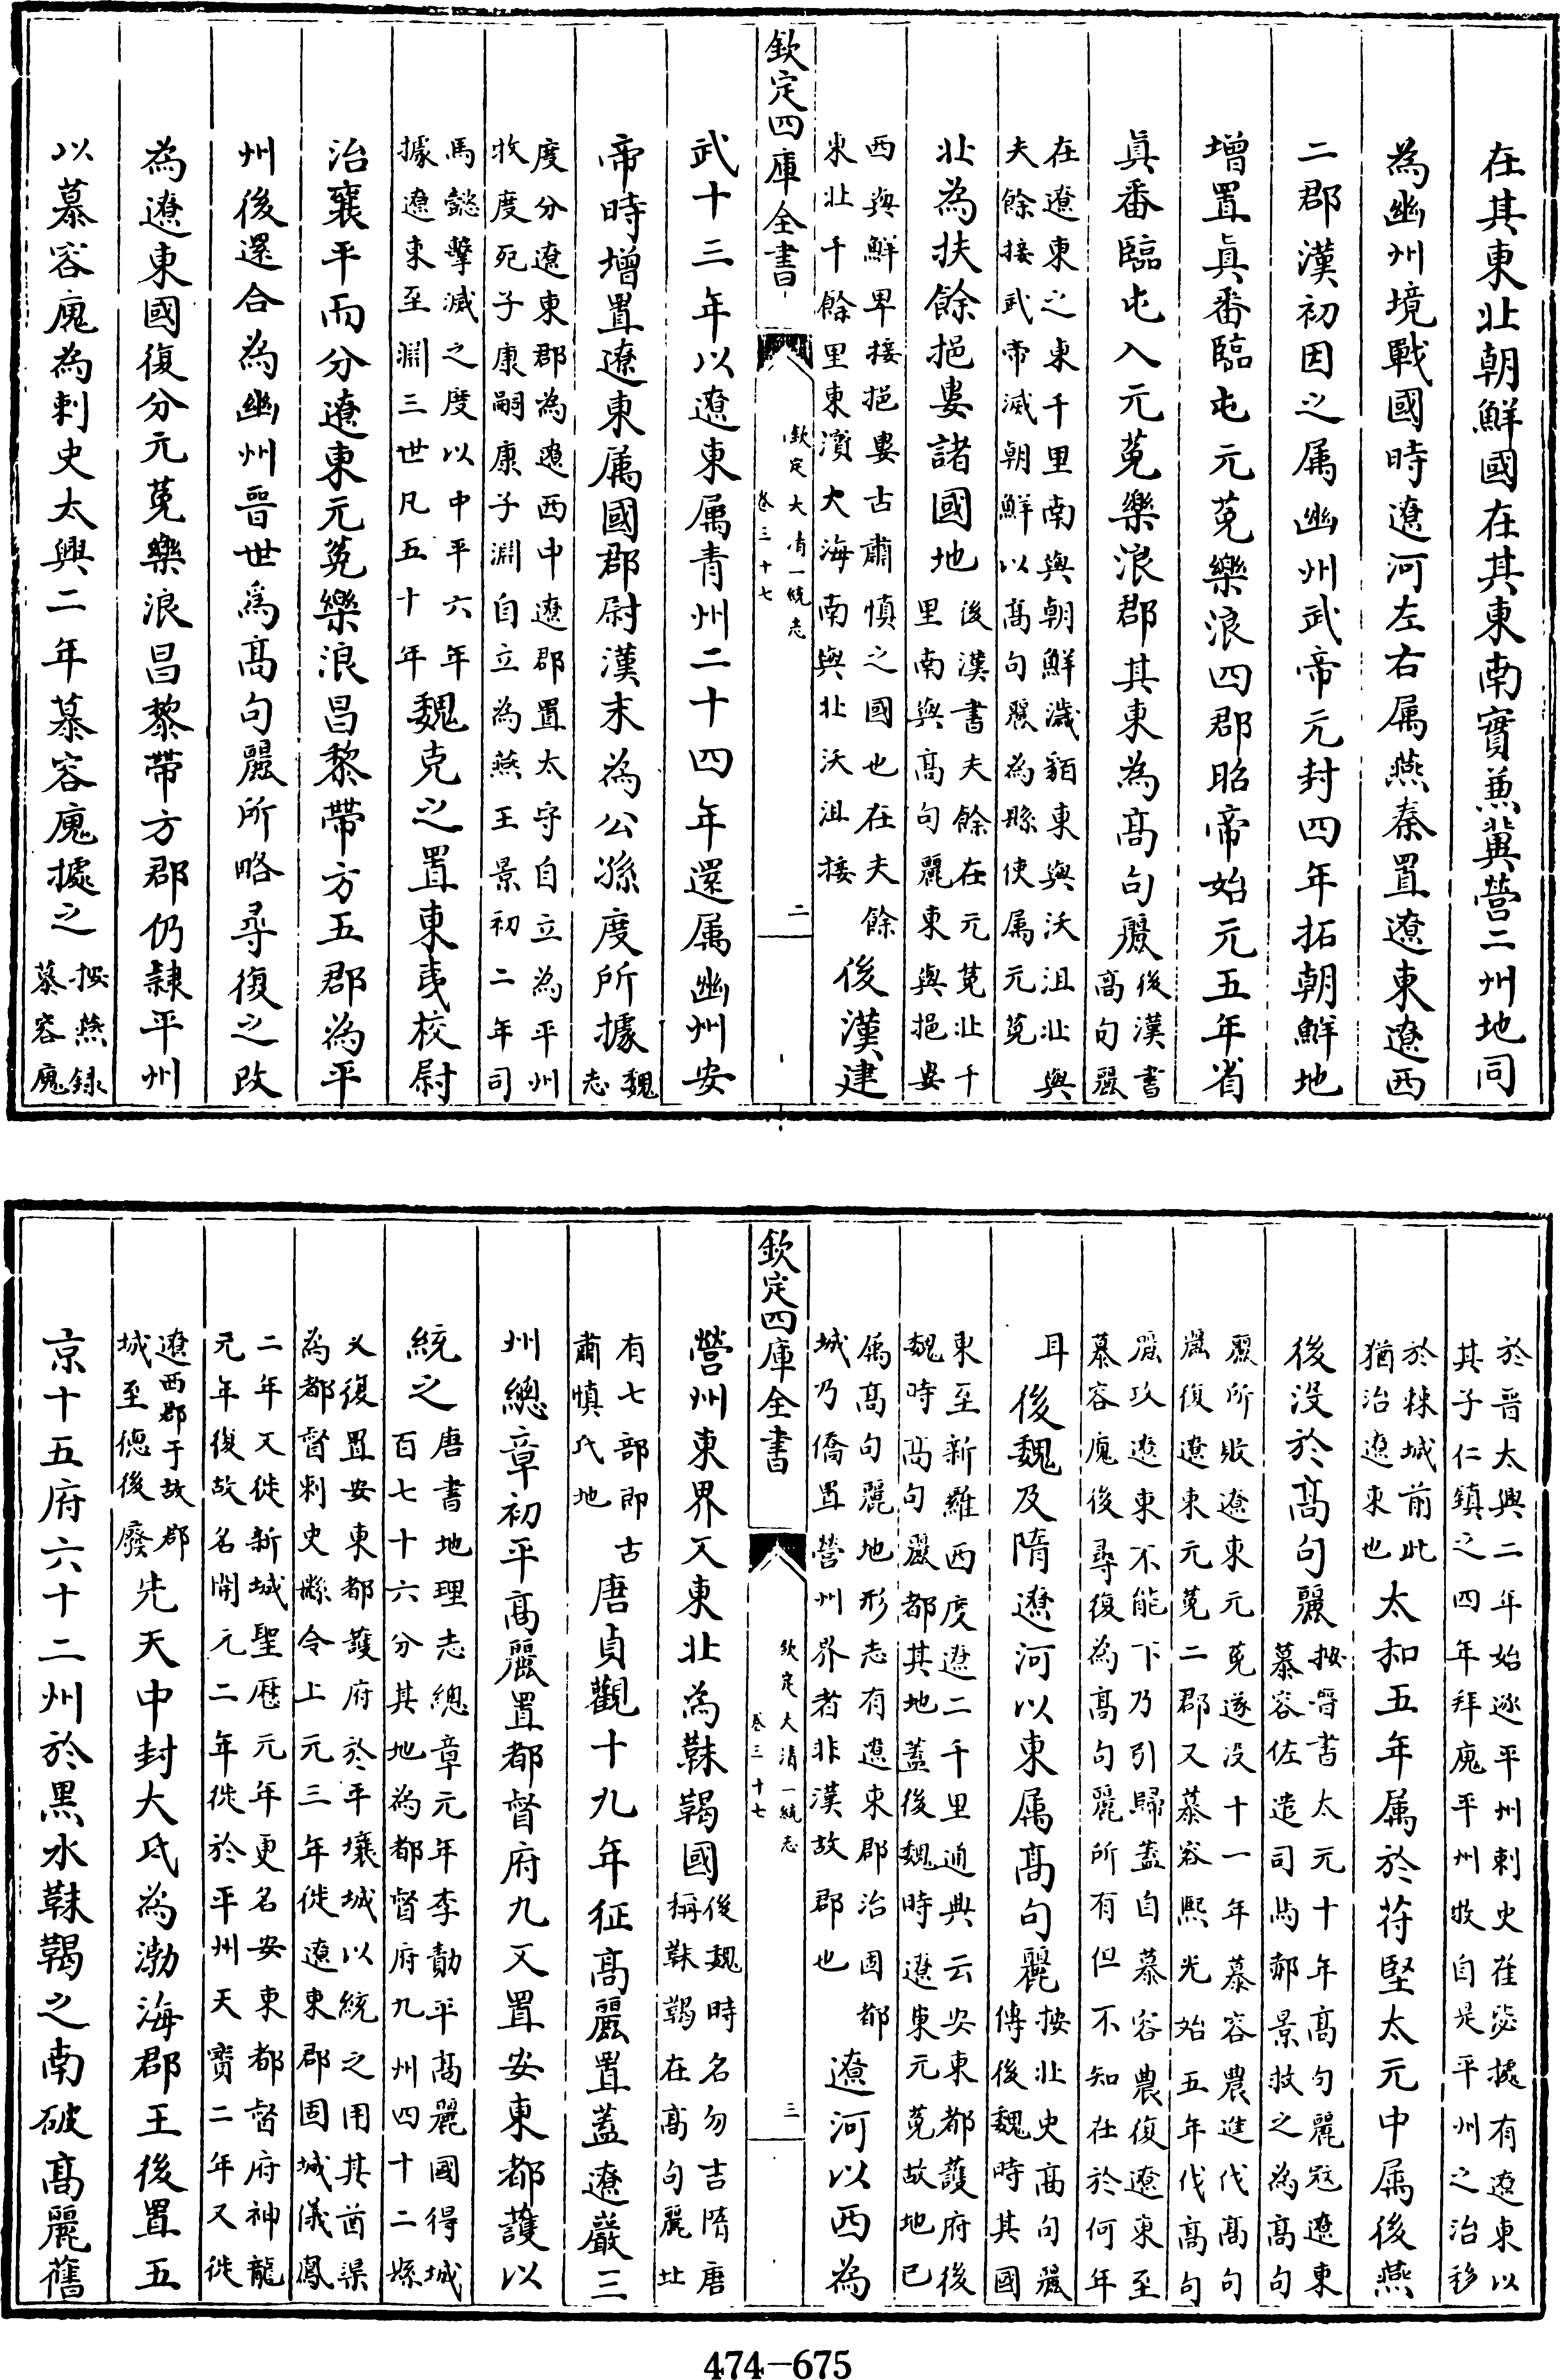 在其東北朝鮮國在其東南實兼冀營二州地同
為幽州境戰國時遼河左右屬燕秦置遼東遼西
二郡漢初因之屬幽州武帝元封四年拓朝鮮地
增置真番臨屯元菟樂浪四郡昭帝始元五年省
真番臨屯入元菟樂浪郡其東為高句驪後漢書高句驪
在遼東之東千里南與朝鮮濊貊東與沃沮北與
夫餘接武帝滅朝鮮以高句驪為縣使屬元菟
北為扶餘挹婁諸國地後漢書夫餘在元菟北千里南與高句麗東與挹婁
西與鮮卑接挹婁古肅慎之國也在夫餘
東北千餘里東濱大海南與北沃沮接
後漢建
欽定四庫全書
欽定大清一統志
卷三十七
二
武十三年以遼東屬青州二十四年還屬幽州安
帝時增置遼東屬國郡尉漢末為公孫度所據魏志
度分遼東郡為遼西中遼郡置太守自立為平州
牧度死子康嗣康子淵自立為燕王景初二年司
馬懿擊滅之度以中平六年
據遼東至淵三世凡五十年
魏克之置東夷校尉
治襄平而分遼東元菟樂浪昌黎帶方五郡為平
州後還合為幽州晉世為高句驪所略尋復之改
為遼東國復分元菟樂浪昌黎帶方郡仍隸平州
以慕容廆為刺史太興二年慕容廆據之按燕録慕容廆
於晉太興二年始逐平州刺史崔毖據有遼東以
其子仁鎮之四年拜廆平州牧自是平州之治移
於棘城前此
猶治遼東也
太和五年屬於苻堅太元中屬後燕
後没於高句驪按晉書太元十年高句麗冦遼東慕容佐遣司馬郝景救之為高句
驪所敗遼東元菟遂没十一年慕容農進伐高句
驪復遼東元菟二郡又慕容熙光始五年伐高句
驪攻遼東不能下乃引歸蓋自慕容農復遼東至
慕容廆後尋復為高句麗所有但不知在於何年
耳
後魏及隋遼河以東屬高句麗按北史高句驪傳後魏時其國
東至新羅西度遼二千里通典云安東都護府後
魏時高句驪都其地蓋後魏時遼東元菟故地已
屬高句麗地形志有遼東郡治固都
城乃僑置營州界者非漢故郡也
遼河以西為
欽定四庫全書
欽定大清一統志
卷三十七
三
營州東界又東北為靺鞨國後魏時名勿吉隋唐稱靺鞨在高句麗北
有七部即古
肅慎氏地
唐貞觀十九年征高麗置蓋遼巖三
州總章初平高麗置都督府九又置安東都護以
統之唐書地理志總章元年李勣平高麗國得城百七十六分其地為都督府九州四十二縣
又復置安東都護府於平壤城以統之用其酋渠
為都督刺史縣令上元三年徙遼東郡固城儀鳳
二年又徙新城聖歷元年更名安東都督府神龍
元年復故名開元二年徙於平州天寶二年又徙
遼西郡于故郡
城至德後廢
先天中封大氏為渤海郡王後置五
京十五府六十二州於黑水靺鞨之南破高麗舊
474-675